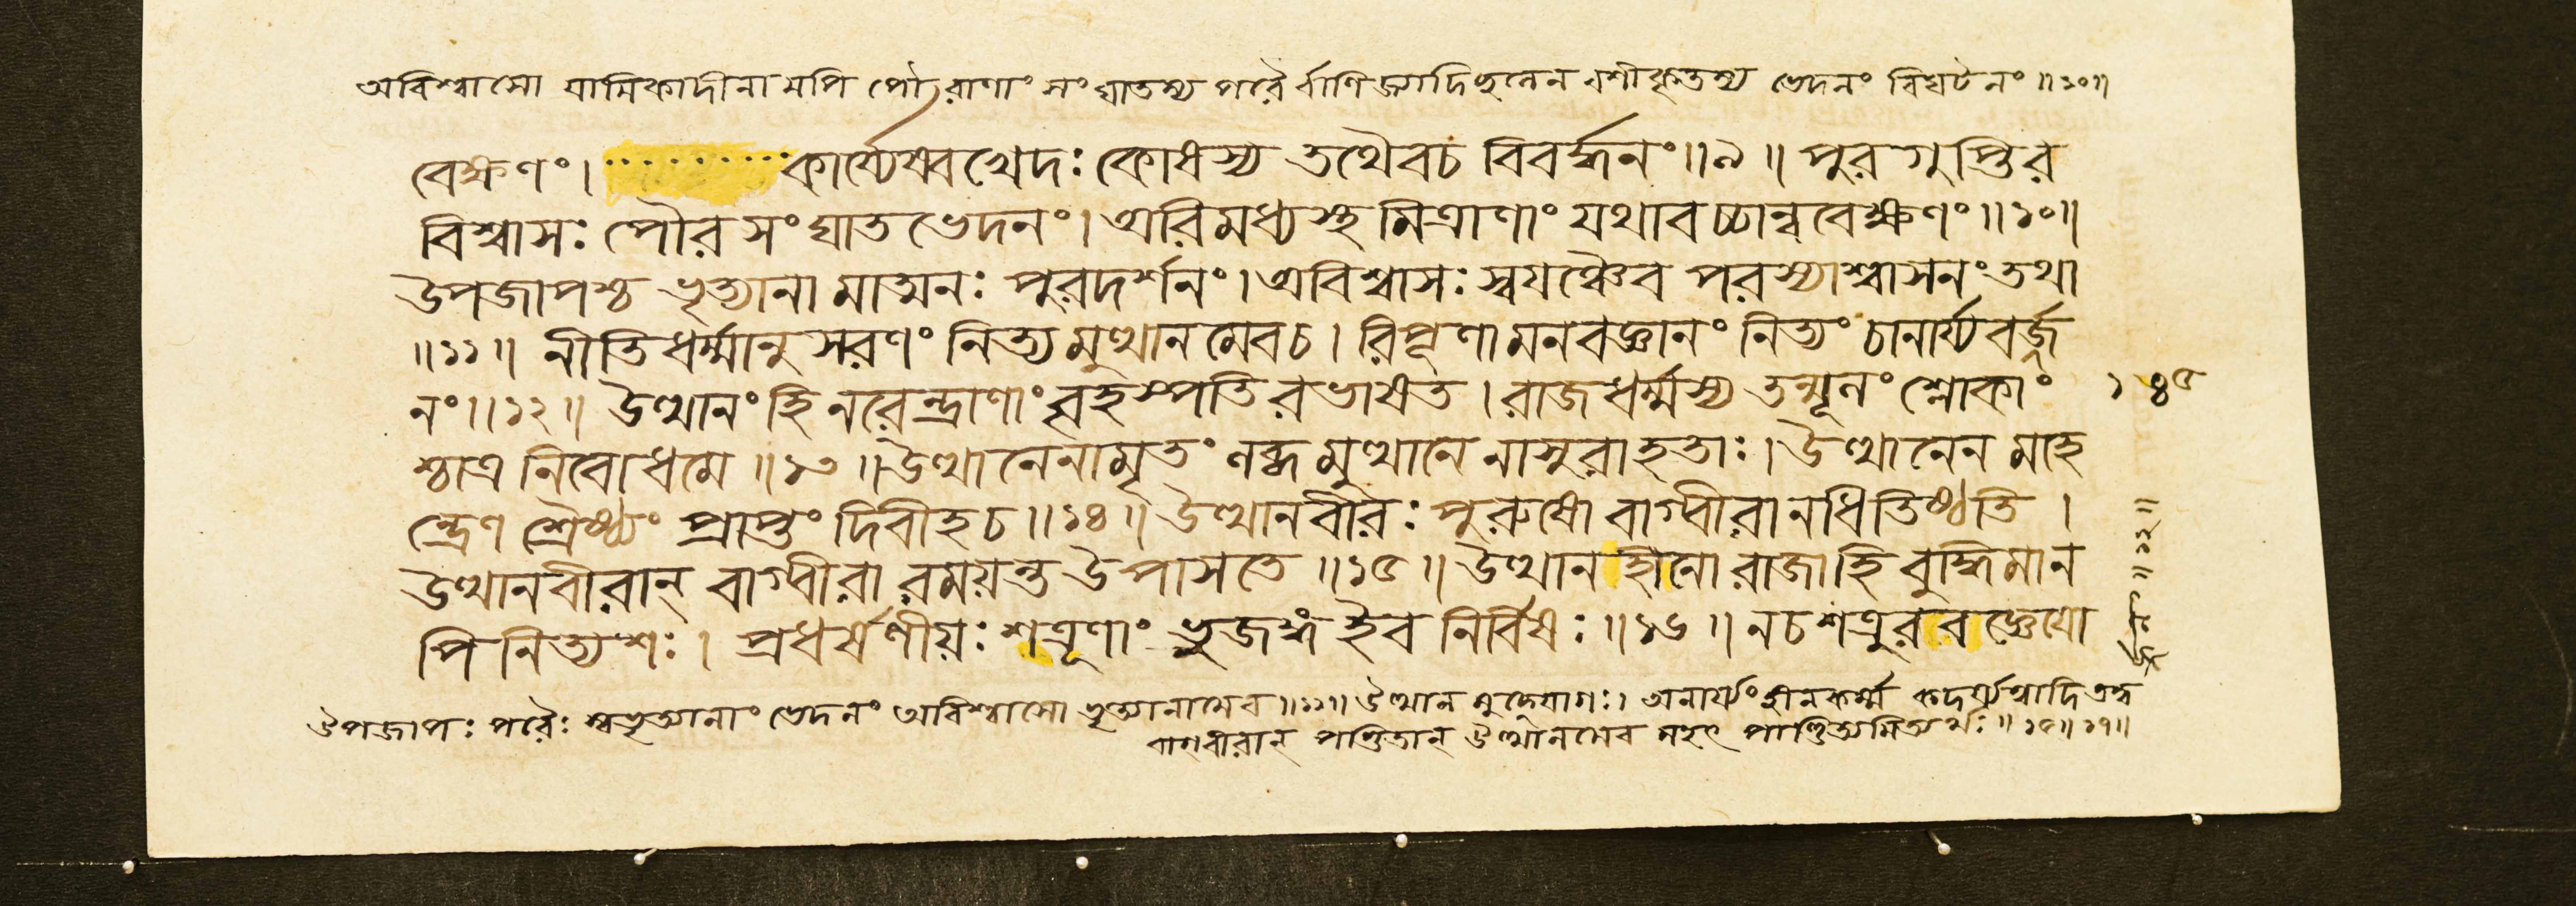 অবিশ্বাসো যামিকাদীনামপি পৌরাণাং সংঘাতস্য পরৈর্বাণিজ্যাদিছলেন বশীকৃতস্য ভেদনং বিঘটনং ॥১০॥
বেক্ষণং। ·········· কার্য্যেষ্বখেদঃ কোষস্য তথৈবচ বিবর্দ্ধনং॥৯॥ পুরগুপ্তির
বিশ্বাসঃ পৌরসংঘাতভেদনং। অরিমধ্যস্থমিত্রাণাং যথাবচ্চান্ববেক্ষণং॥১০॥
উপজাপশ্চ ভৃত্যানামাত্মনঃ পুরদর্শনং। অবিশ্বাসঃ স্বয়ঞ্চৈব পরস্যাশ্বাসনং তথা
॥১১॥ নীতিধর্ম্মানুসরণং নিত্যমুত্থানমেবচ। রিপূণামনবজ্ঞানং নিত্যং চানার্য্যবর্জ্জ
নং॥১২॥ উত্থানং হি নরেন্দ্রাণাং বৃহস্পতিরভাষত। রাজধর্ম্মস্য তন্মূলং শ্লোকাং
শ্চাত্র নিবোধমে॥১৩॥ উত্থানেনামৃতং লব্ধমুত্থানেনাসুরাহতাঃ। উত্থানেন মহে
ন্দ্রেণ শ্রৈষ্ঠ্যং প্রাপ্তং দিবীহচ॥১৪॥ উত্থানবীরঃ পুরুষো বাগ্বীরানধিতিষ্ঠতি।
উত্থানবীরান্ বাগ্বীরা রময়ন্ত উপাসতে॥১৫॥ উত্থানহীনো রাজাহি বুদ্ধিমান
পি নিত্যশঃ। প্রধর্ষণীয়ঃ শত্রূণাং ভুজঙ্গ ইব নির্বিষঃ॥১৬॥ নচ শত্রুরবজ্ঞেয়ো
১৪৫
॥১২॥
উপজাপঃ পরৈঃ স্বভৃত্যানাং ভেদনং অবিশ্বাসো ভৃত্যানামেব॥১১॥ উত্থানমুদ্যোগঃ। অনার্য্যং হীনকর্ম্ম
বাগ্বীরান্ পণ্ডিতান্ উত্থানমেব মহৎ পাণ্ডিত্যমিত্যর্থঃ॥১৫॥